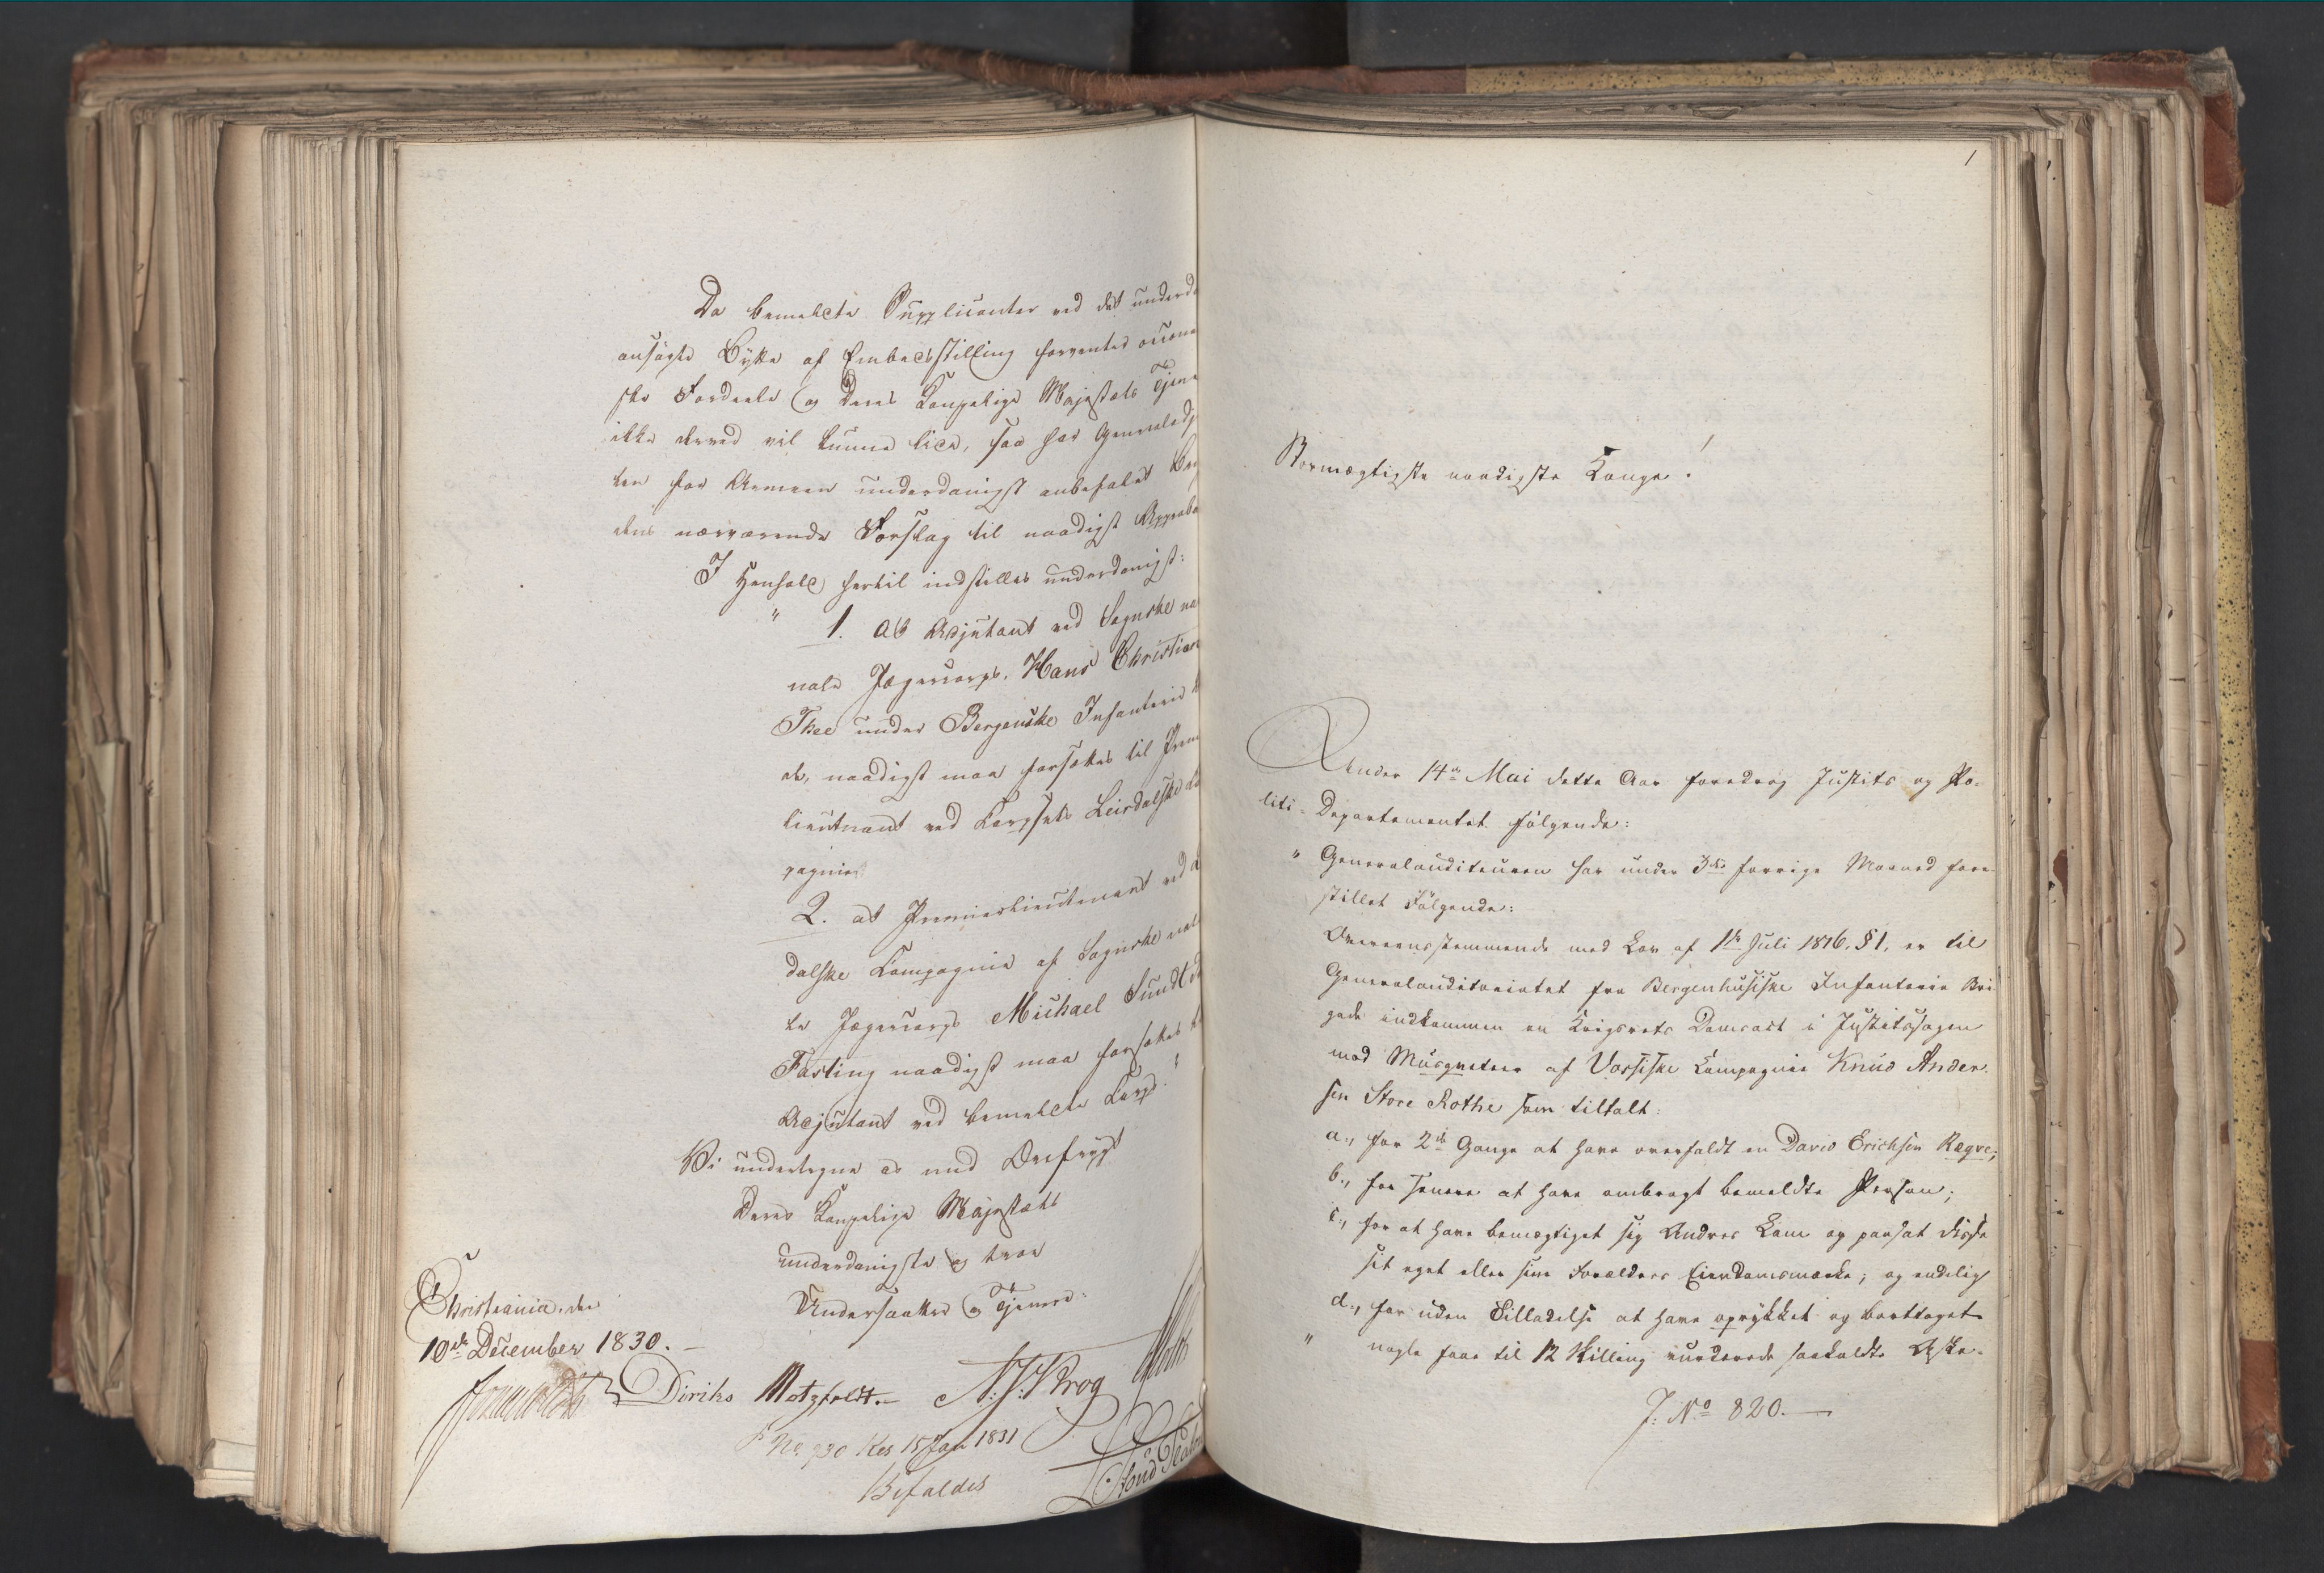 Da bemeldte Supplicanter ved det underd
ansøgte Bytte af Embedsstilling forventes oecono
ske Fordeele og Deres Kongelige Majestæts Tjene
ikke derved vil kunne lide, saa har Generaladj
ten for Armeen underdanigst anbefalet Bri
dens nærværende Forslag til naadigst Approba
I Henhold hertil indstilles underdanigst:
" 1. At Adjutant ved Sognske na
nale Jægercorps, Hans Christian
Thee under Bergenske Infanterie B
de, naadigst maa forsættes til Prem
lieutnant ved Corpsets Leirdalske Co
pagnie
2. at Premierlieutenant ved
dalske Compagnie af Sognske nat
le Jægercorps Michael Sundt
Fasting naadigst maa forsættes t
Adjutant ved bemeldte Corps."
Vi undertegne os med Ærefrygt
Deres Kongelige Majestæts
underdanigste og troe
Undersaatter og Tjenere
Christiania, den
10de December 1830. –
Diriks Motzfeldt. – N: J: Krog
No. 730 Res 15 Jan 1831
Bifaldes
1
Stormægtigste naadigste Konge!
Under 14de Mai dette Aar foredrog Justits og Po-
liti-Departementet følgende:
" Generalauditeuren har under 3die forrige Maaned fore-
stillet Følgende:
Overeensstemmende med Lov af 1ste Juli 1816, § 1, er til
Generalauditoriatet fra Bergenhusiske Infanterie Bri-
gade indkommen en Krigsrets Domsact i Justitssagen
mod Musqueteer af Vossiske Compagnie Knud Ander-
sen Store Rothe som tiltalt:
a., for 2de Gange at have overfaldt en David Erichsen Rægve;
b., for senere at have ombragt bemeldte Person;
c., for at have bemægtiget sig Andres Lam og paasat disse
sit eget eller sine Forældres Eiendomsmærke; og endelig
d., for uden Tilladelse at have oprykket og borttaget
" nogle faae til 12 Skilling vurderede saakaldte Aske-
J. No 820. –